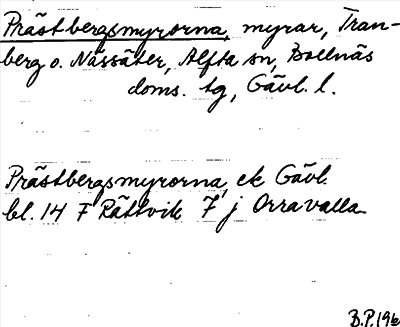 Prästbergsmyrorna, myrar, Tran-
berg o. Nässäter, Alfta sn, Bollnäs
doms. tg, Gävl. l.
Prästbergsmyrorna, ek Gävl.
bl. 14 F Rättvik 7 j Orravalla
B.P. 196